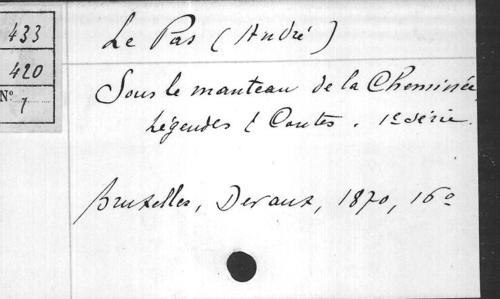 433
420
N° 7
Le Pas (André)
Sous le manteau de la Cheminée
Légendes & Contes. 1e série.
Bruxelles, Devaux, 1870, 16°